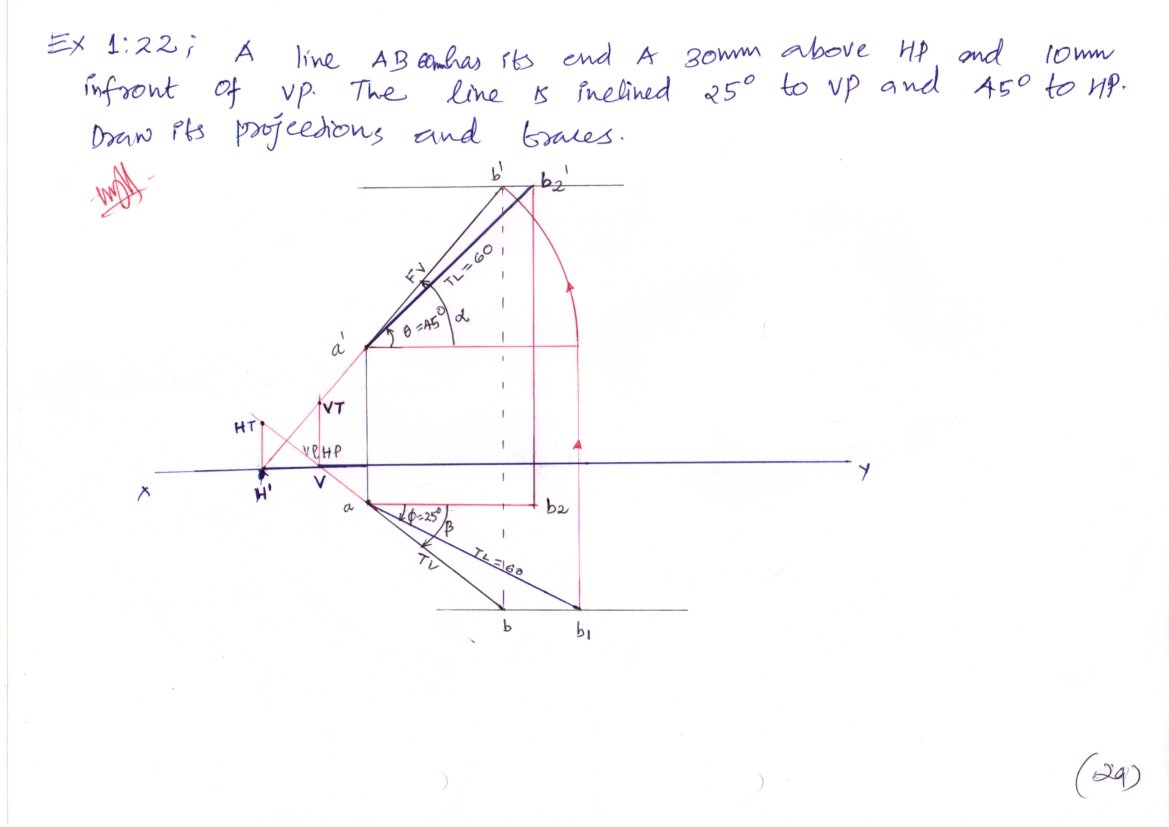 Ex 1:22; A line AB has its end A 30mm above HP and 10mm
infront of VP. The line is inclined 25° to VP and 45° to HP.
Draw its projections and traces.
b' b2'
FV
TL=60
θ=45° α
a'
VT
HT
VP HP
X H' V Y
a φ=25° β b2
TV TL=60
b b1
(29)